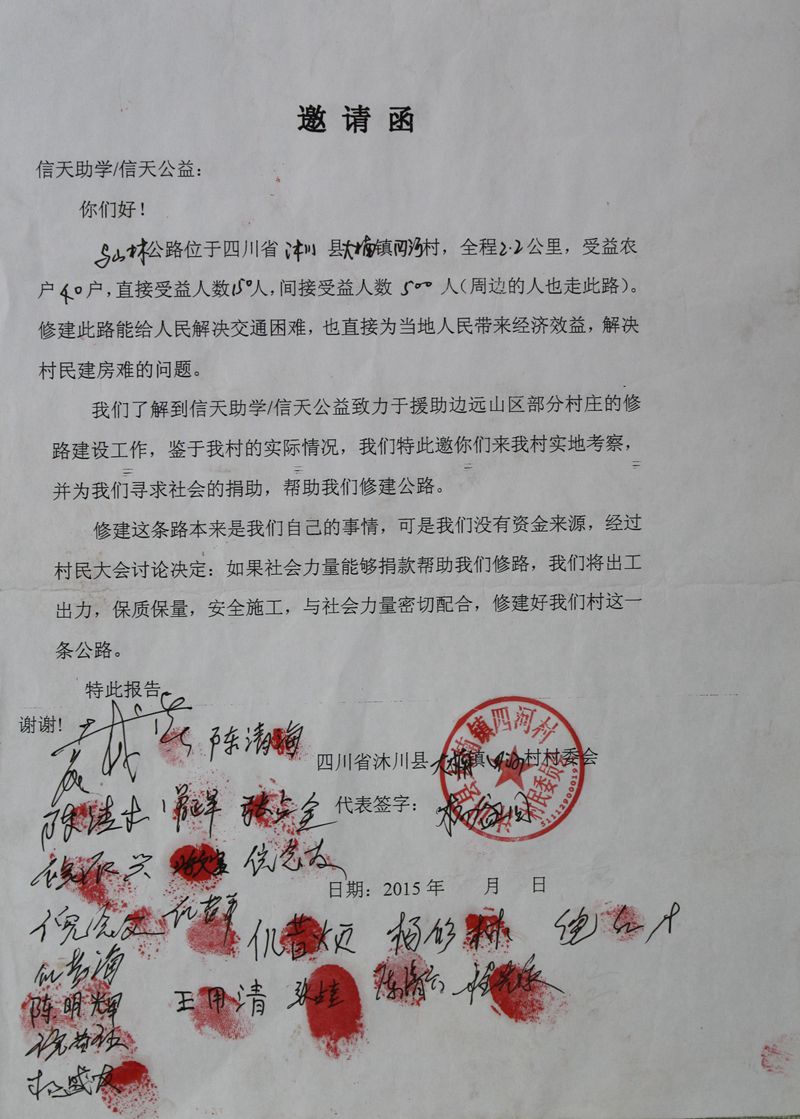 邀请函
信天助学/信天公益：
你们好！
马山林公路位于四川省沐川县大楠镇四河村，全程2.2公里，受益农
户40户，直接受益人数150人，间接受益人数500人（周边的人也走此路）。
修建此路能给人民解决交通困难，也直接为当地人民带来经济效益，解决
村民建房难的问题。
我们了解到信天助学/信天公益致力于援助边远山区部分村庄的修
路建设工作，鉴于我村的实际情况，我们特此邀你们来我村实地考察，
并为我们寻求社会的捐助，帮助我们修建公路。
修建这条路本来是我们自己的事情，可是我们没有资金来源，经过
村民大会讨论决定：如果社会力量能够捐款帮助我们修路，我们将出工
出力，保质保量，安全施工，与社会力量密切配合，修建好我们村这一
条公路。
特此报告
谢谢！
陈清海
四川省沐川县大楠镇四河村村委会
代表签字：
日期：2015年 月 日
陈明辉 王用清